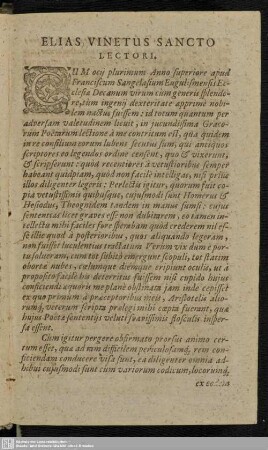 ELIAS VINETUS SANCTO
LECTORI.
CUM ocij plurimum Anno superiore apud
Franciscum Sangelasium Engulismensis Ec-
clesiæ Decanum virum cum generis splendo-
re, tum ingenij dexteritate apprimè nobi-
lem nactus fuissem: id totum quantum per
adversam valetudinem licuit, in jucundissima Græco-
rum Poëtarum lectione à me contritum est, qua quidem
in re
scriptores eo legendos ordine censent, quo & vixerunt,
& scripserunt: quòd recentiores à vetustioribus semper
habeant quidpiam, quod non facilè intelligas, nisi priùs
illos diligenter legeris: Perlectis igitur, quorum fuit co-
pia vetustissimis quibusque, cujusmodi sunt Homerus &
Hesiodus, Theognidem tandem in manus sumsi: cujus
sententias licet graves esse non dubitarem, eo tamen in-
tellectu mihi faciles fore sperabam quòd crederem nil es-
se
non fuisset luculentius tractatum. Verùm vix dum è por-
tu solveram, cum tot subitò emergunt scopuli, tot statim
oborta nubes, cælumque diemque eripiunt oculis, ut à
proposito facilè hic deterritus fuissem nisi cupido hujus
conficiendi
ex quo primùm à præceptoribus meis, Aristotelis alio-
rumq́; veterum scripta prælegi mihi cœpta fuerant, quæ
hujus Poëtæ sententijs veluti suavissimis flosculis insper-
sa essent.
Cùm igitur pergere obfirmato prorsus animo cer-
tum esset, quæ ad rem difficilem periculosamq́; rem con-
ficiendam conducere visa sunt, ea diligenter omnia ad-
hibui cujusmodi sunt cum variorum codicum, locorumq́;
ex